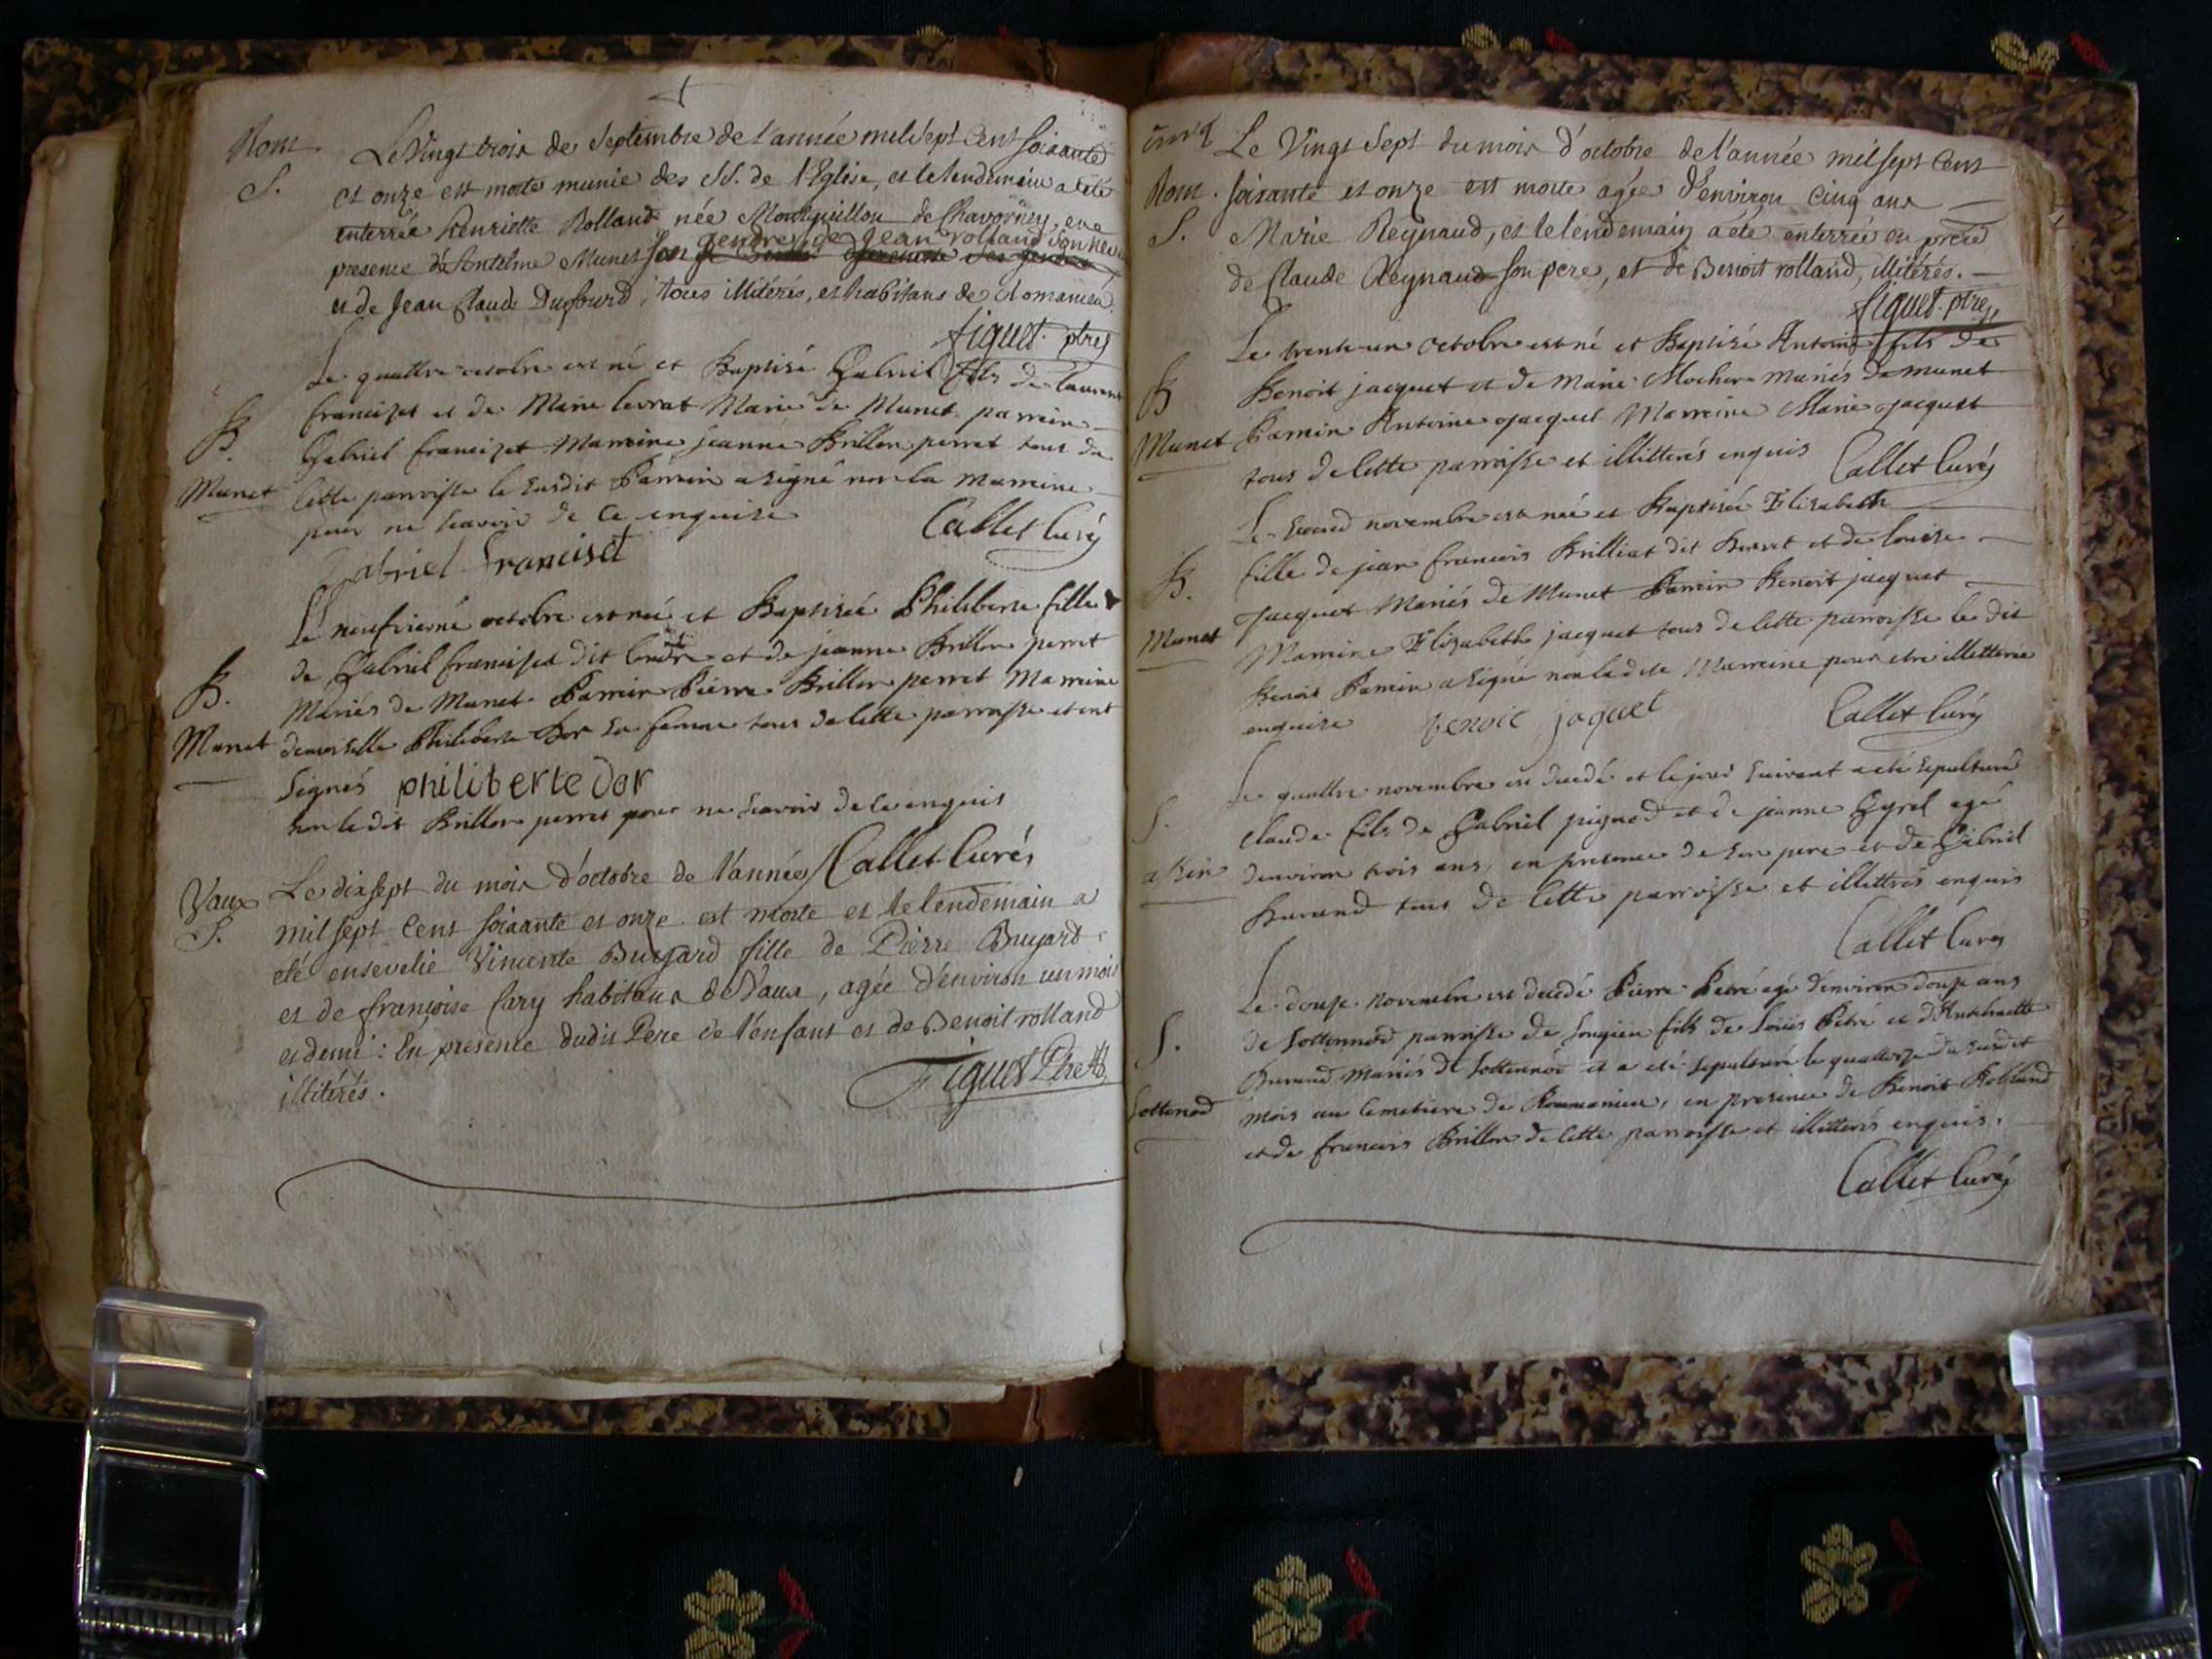 Rom. Le Vingt trois de Septembre de l'année mil sept Cent soixante
S. et onze est morte munie des SS. de l'Eglise, et le lendemain a été
enterrée henriette Rolland née de Chavorney, en
presence d'Antelme Munet son gendre, de Jean rolland son neveu
et de Jean Claude Dufourd, tous illitérés, et habitans de Romanieu.
figuet ptre
Le quattre octobre est né et Baptisé Gabriel fils de laurent
B. francizet et de Marie levrat Mariés de Munet parrein
Gabriel francizet Marreine jeanne Brillon perret tous de
Munet Cette parroisse le susdit Parrein a signé non la Marreine
pour ne scavoir de ce enquise Callet Curé
Gabriel franciset
Le neufvieme octobre est née et Baptisée Philiberte fille
de Gabriel francizet dit et de jeanne Brillon perret
B. Mariés de Munet Parrein Pierre Brillon perret Marreine
Munet demoiselle Philiberte Dor sa femme tous de Cette parroisse et ont
signés philiberte dor
non le dit Brillon perret pour ne scavoir de ce enquis
Callet Curé
Vaux Le dix sept du mois d'octobre de l'année
S. mil sept Cent soixante et onze est morte et le lendemain a
été ensevelie Vincente Bugard fille de Pierre Bugard
et de françoise fary habitans de Vaux, agée d'environ un mois
et demi : En presence dudit Pere de l'enfant et de Benoit rolland
illitérés. Figuet Ptre
Le Vingt Sept du mois d'octobre de l'année mil sept Cent
Rom. soixante et onze est morte agée d'environ cinq ans
S. Marie Reynaud, et le lendemain a été enterrée en prece
de Claude Reynaud son pere, et de Benoit rolland, illitérés.
figuet ptre
Le trente un octobre est né et Baptisé Antoine fils de
B Benoit jacquet et de Marie Mochon Mariés de munet
Munet Parrein Antoine jacquet Marreine Marie jacquet
tous de Cette parroisse et illitterés enquis Callet Curé
Le second novembre est née et Baptisée Elizabeth
fille de jean francois Brilliat dit Burret et de louise
B. jacquet Mariés de Munet Parrein Benoit jacquet
Munet Marreine Elizabeth jacquet tous de Cette parroisse le dit
Benoit Parrein a signé non ladite Marreine pour etre illetterée
enquise benoit jaquet Callet Curé
Le quattre novembre est decedé et le jour suivant a eté sepulturé
S. Claude fils de Gabriel pignod et de jeanne Gyrel agé
denviron trois ans, en presence de son pere et de Gabriel
Burand tous de Cette parroisse et illettrés enquis
Callet Curé
Le douze novembre est decedé Pierre Petré agé denviron douze ans
S. de Sottonnod parroisse de Songieu fils de Loüis Petré et d'Anthelmette
Burand Mariés de Sottonnod et a eté sepulturé le quattorze du susdit
Sottonod mois au Cemetiere de Rommanieu, en presence de Benoit Rolland
et de francois Brillon de Cette parroisse et illitterés enquis.
Callet Curé